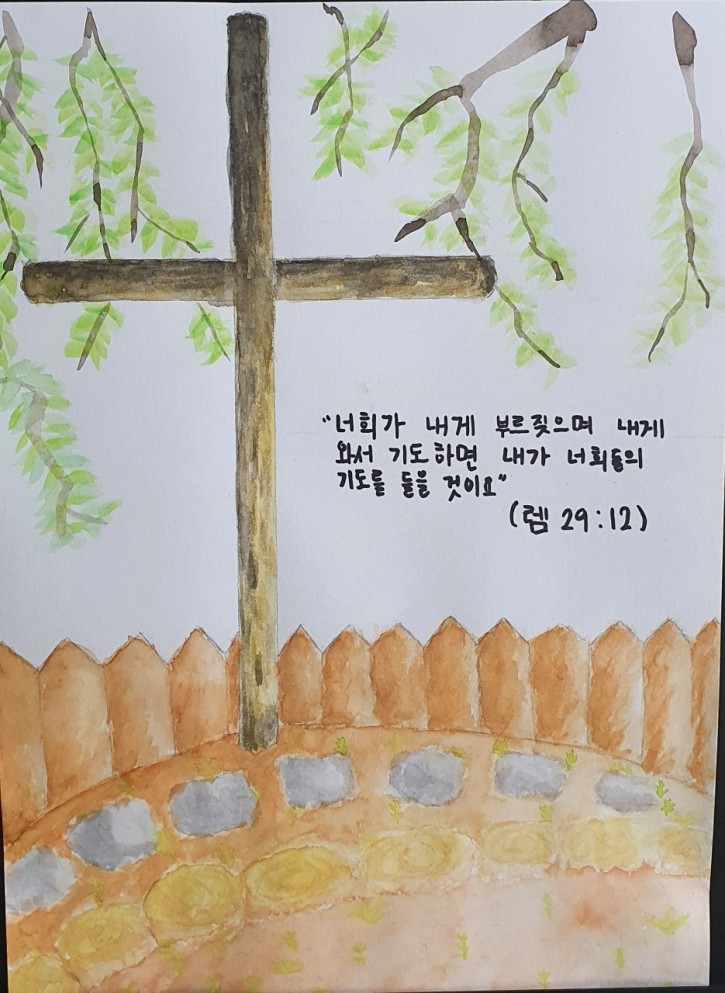 "너희가 내게 부르짖으며 내게
와서 기도하면 내가 너희들의
기도를 들을 것이요"
(렘 29:12)